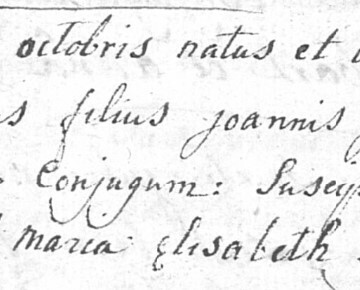 octobris natus et
s filius joannis
Conjugum: Suscep
maria Elisabeth